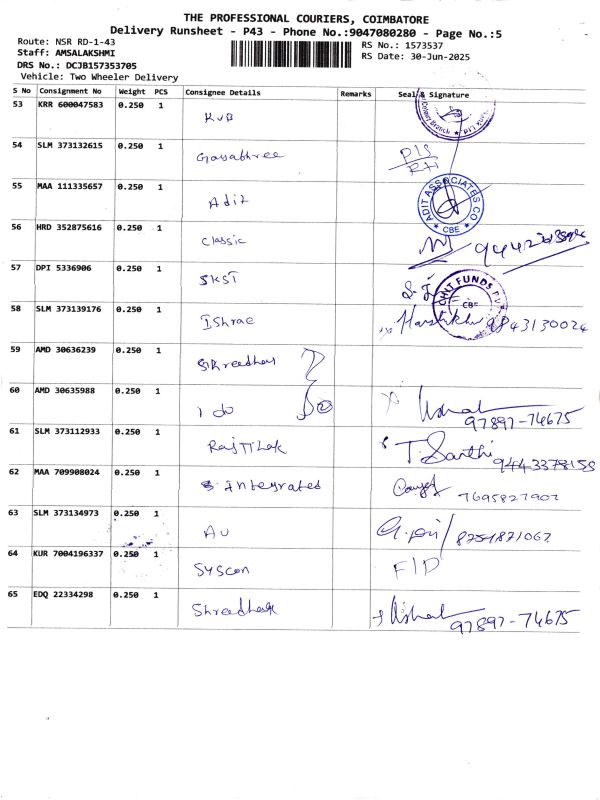 THE PROFESSIONAL COURIERS, COIMBATORE
Delivery Runsheet - P43 - Phone No.:9047080280 - Page No.:5
Route: NSR RD-1-43
Staff: AMSALAKSHMI
DRS No.: DCJB157353705
Vehicle: Two Wheeler Delivery
RS No.: 1573537
RS Date: 30-Jun-2025
S No Consignment No Weight PCS Consignee Details Remarks Seal & Signature
53 KRR 600047583 0.250 1 KVB
54 SLM 373132615 0.250 1
55 MAA 111335657 0.250 1 Adit ADIT ASSOCIATES CO CBE
56 HRD 352875616 0.250 1 Classic
57 DPI 5336906 0.250 1 SKST CHIT FUNDS CBE
58 SLM 373139176 0.250 1 Ishrae 9843130024
59 AMD 30636239 0.250 1
60 AMD 30635988 0.250 1 97897-74675
61 SLM 373112933 0.250 1 RajTilak T. Santhi 9443378158
62 MAA 709908024 0.250 1 S. Integrated 7695827902
63 SLM 373134973 0.250 1 AU
64 KUR 7004196337 0.250 1 Syscon
65 EDQ 22334298 0.250 1 97897-74675